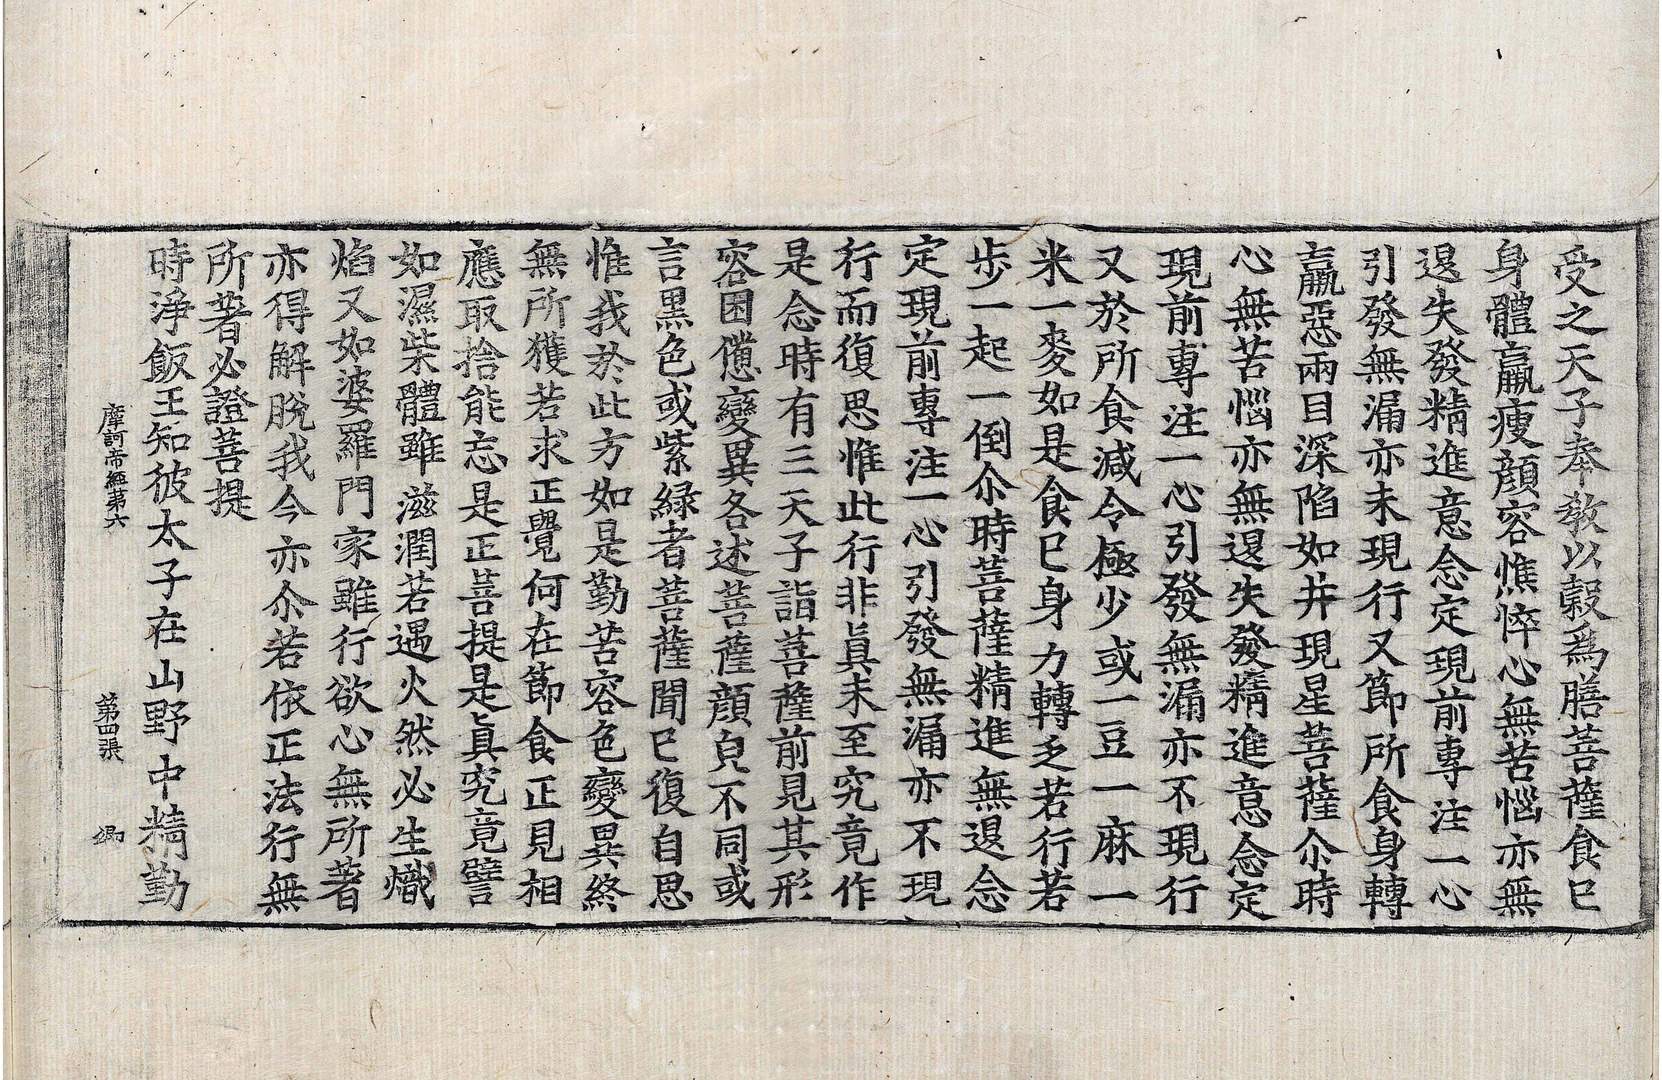 受之天子奉敎以穀爲膳菩薩食已
身體羸瘦顔容憔悴心無苦惱亦無
退失發精進意念定現前專注一心
引發無漏亦未現行又節所食身轉
羸惡兩目深陷如井現星菩薩尒時
心無苦惱亦無退失發精進意念定
現前專注一心引發無漏亦不現行
又於所食減令極少或一豆一麻一
米一麥如是食已身力轉乏若行若
步一起一倒尒時菩薩精進無退念
定現前專注一心引發無漏亦不現
行而復思惟此行非眞未至究竟作
是念時有三天子詣菩薩前見其形
容困憊變異各述菩薩顔皃不同或
言黑色或紫緑者菩薩聞已復自思
惟我於此方如是勤苦容色變異終
無所獲若求正覺何在節食正見相
應取捨能忘是正菩提是眞究竟譬
如濕柴體雖滋潤若遇火然必生熾
焰又如婆羅門家雖行欲心無所著
亦得解脫我今亦尒若依正法行無
所著必證菩提
時淨飯王知彼太子在山野中精勤
摩訶帝經第六 第四張